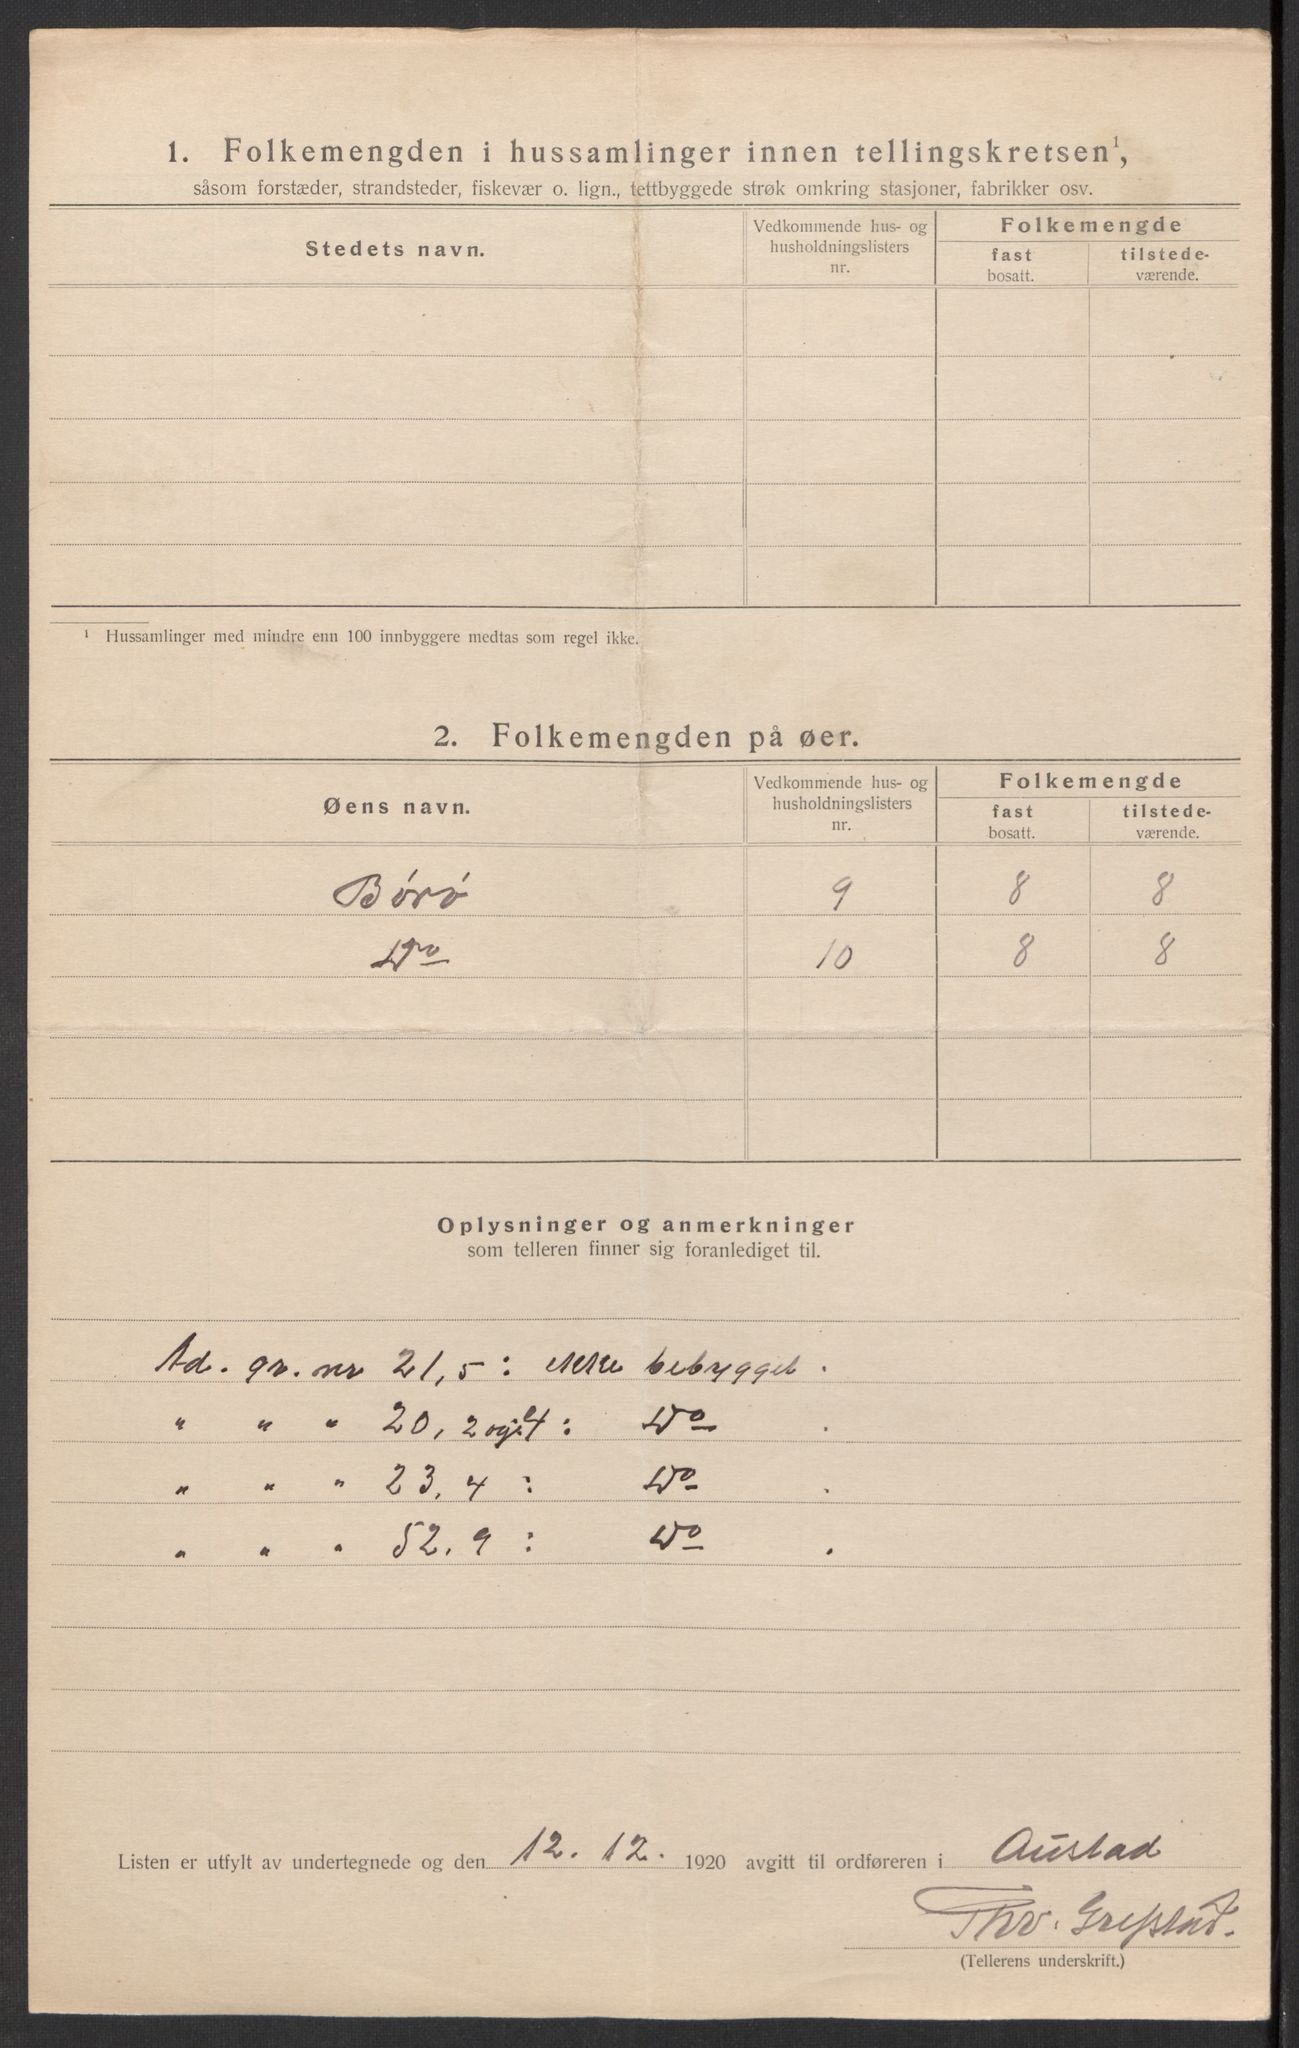 1. Folkemengden i hussamlinger innen tellingskretsen¹,
såsom forstæder, strandsteder, fiskevær o. lign., tettbyggede strøk omkring stasjoner, fabrikker osv.
Stedets navn.
Vedkommende hus- og husholdningslisters nr.
Folkemengde
fast bosatt.
tilstede-værende.
¹ Hussamlinger med mindre enn 100 innbyggere medtas som regel ikke.
2. Folkemengden på øer.
Øens navn.
Vedkommende hus- og husholdningslisters nr.
Folkemengde
fast bosatt.
tilstede-værende.
Børø 9 8 8
Do 10 8 8
Oplysninger og anmerkninger
som telleren finner sig foranlediget til.
Ad. gr. nr 21,5: ikke bebygget.
" " " 20, 2 og 4: Do .
" " " 23, 4: Do .
" " " 52. 9: Do .
Listen er utfylt av undertegnede og den 12. 12. 1920 avgitt til ordføreren i Austad
Thv. Grepstad.
(Tellerens underskrift.)